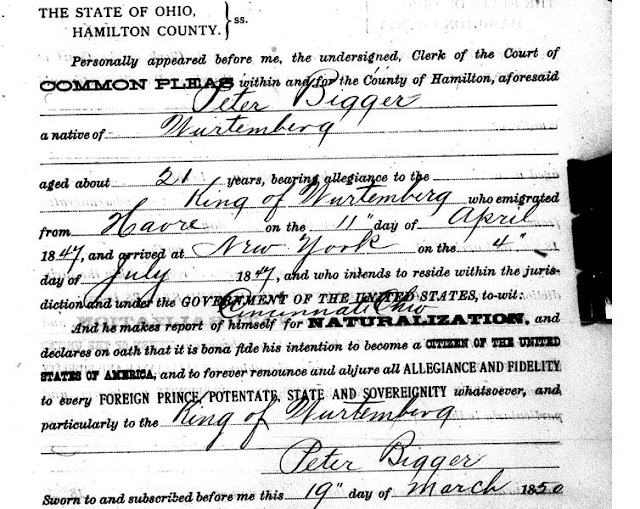 THE STATE OF OHIO,
HAMILTON COUNTY. } ss.
Personally appeared before me, the undersigned, Clerk of the Court of
COMMON PLEAS within and for the County of Hamilton, aforesaid
Peter Bigger
a native of Wurtemberg
aged about 21 years, bearing allegiance to the
King of Wurtemberg who emigrated
from Havre on the 11" day of April
1847, and arrived at New York on the 4"
day of July 1847, and who intends to reside within the juris-
diction and under the GOVERNMENT OF THE UNITED STATES, to-wit:
Cincinnati Ohio
And he makes report of himself for NATURALIZATION, and
declares on oath that it is bona fide his intention to become a CITIZEN OF THE UNITED
STATES OF AMERICA, and to forever renounce and abjure all ALLEGIANCE AND FIDELITY
to every FOREIGN PRINCE, POTENTATE, STATE AND SOVEREIGNITY whatsoever, and
particularly to the King of Wurtemberg
Peter Bigger
Sworn to and subscribed before me this 19" day of March 1850